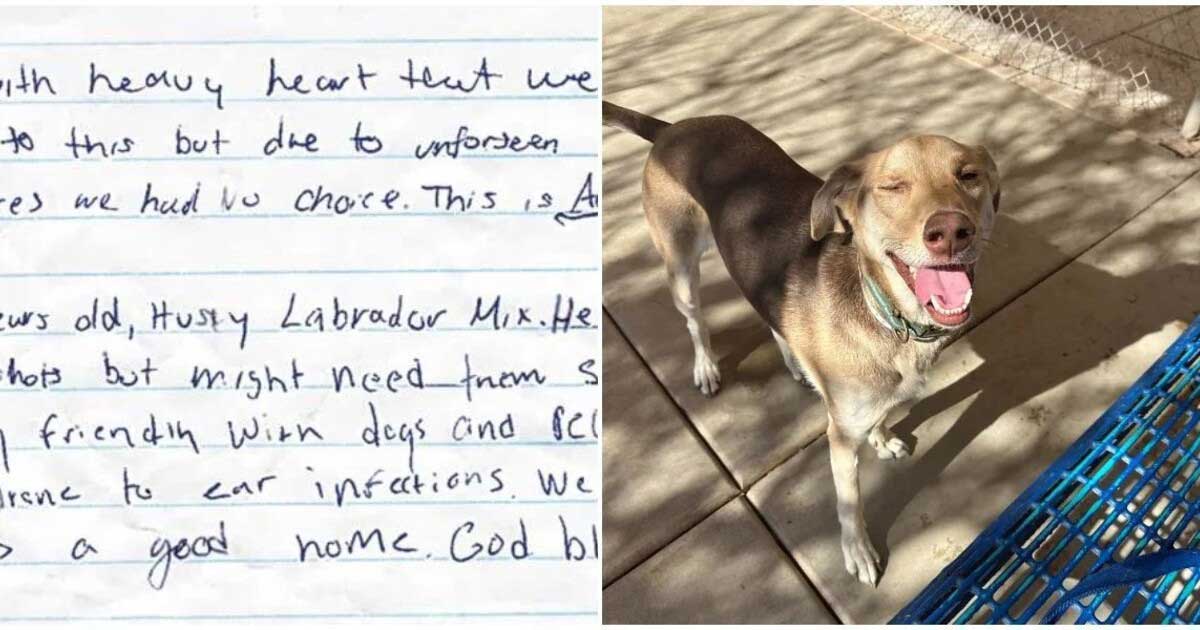 ith heavy heart that we
to this but due to unforseen
es we had No choice. This is A
ears old, Husky Labrador Mix. He
hots but might need them s
y friendly with dogs and
prone to ear infections. We
a good home. God bl